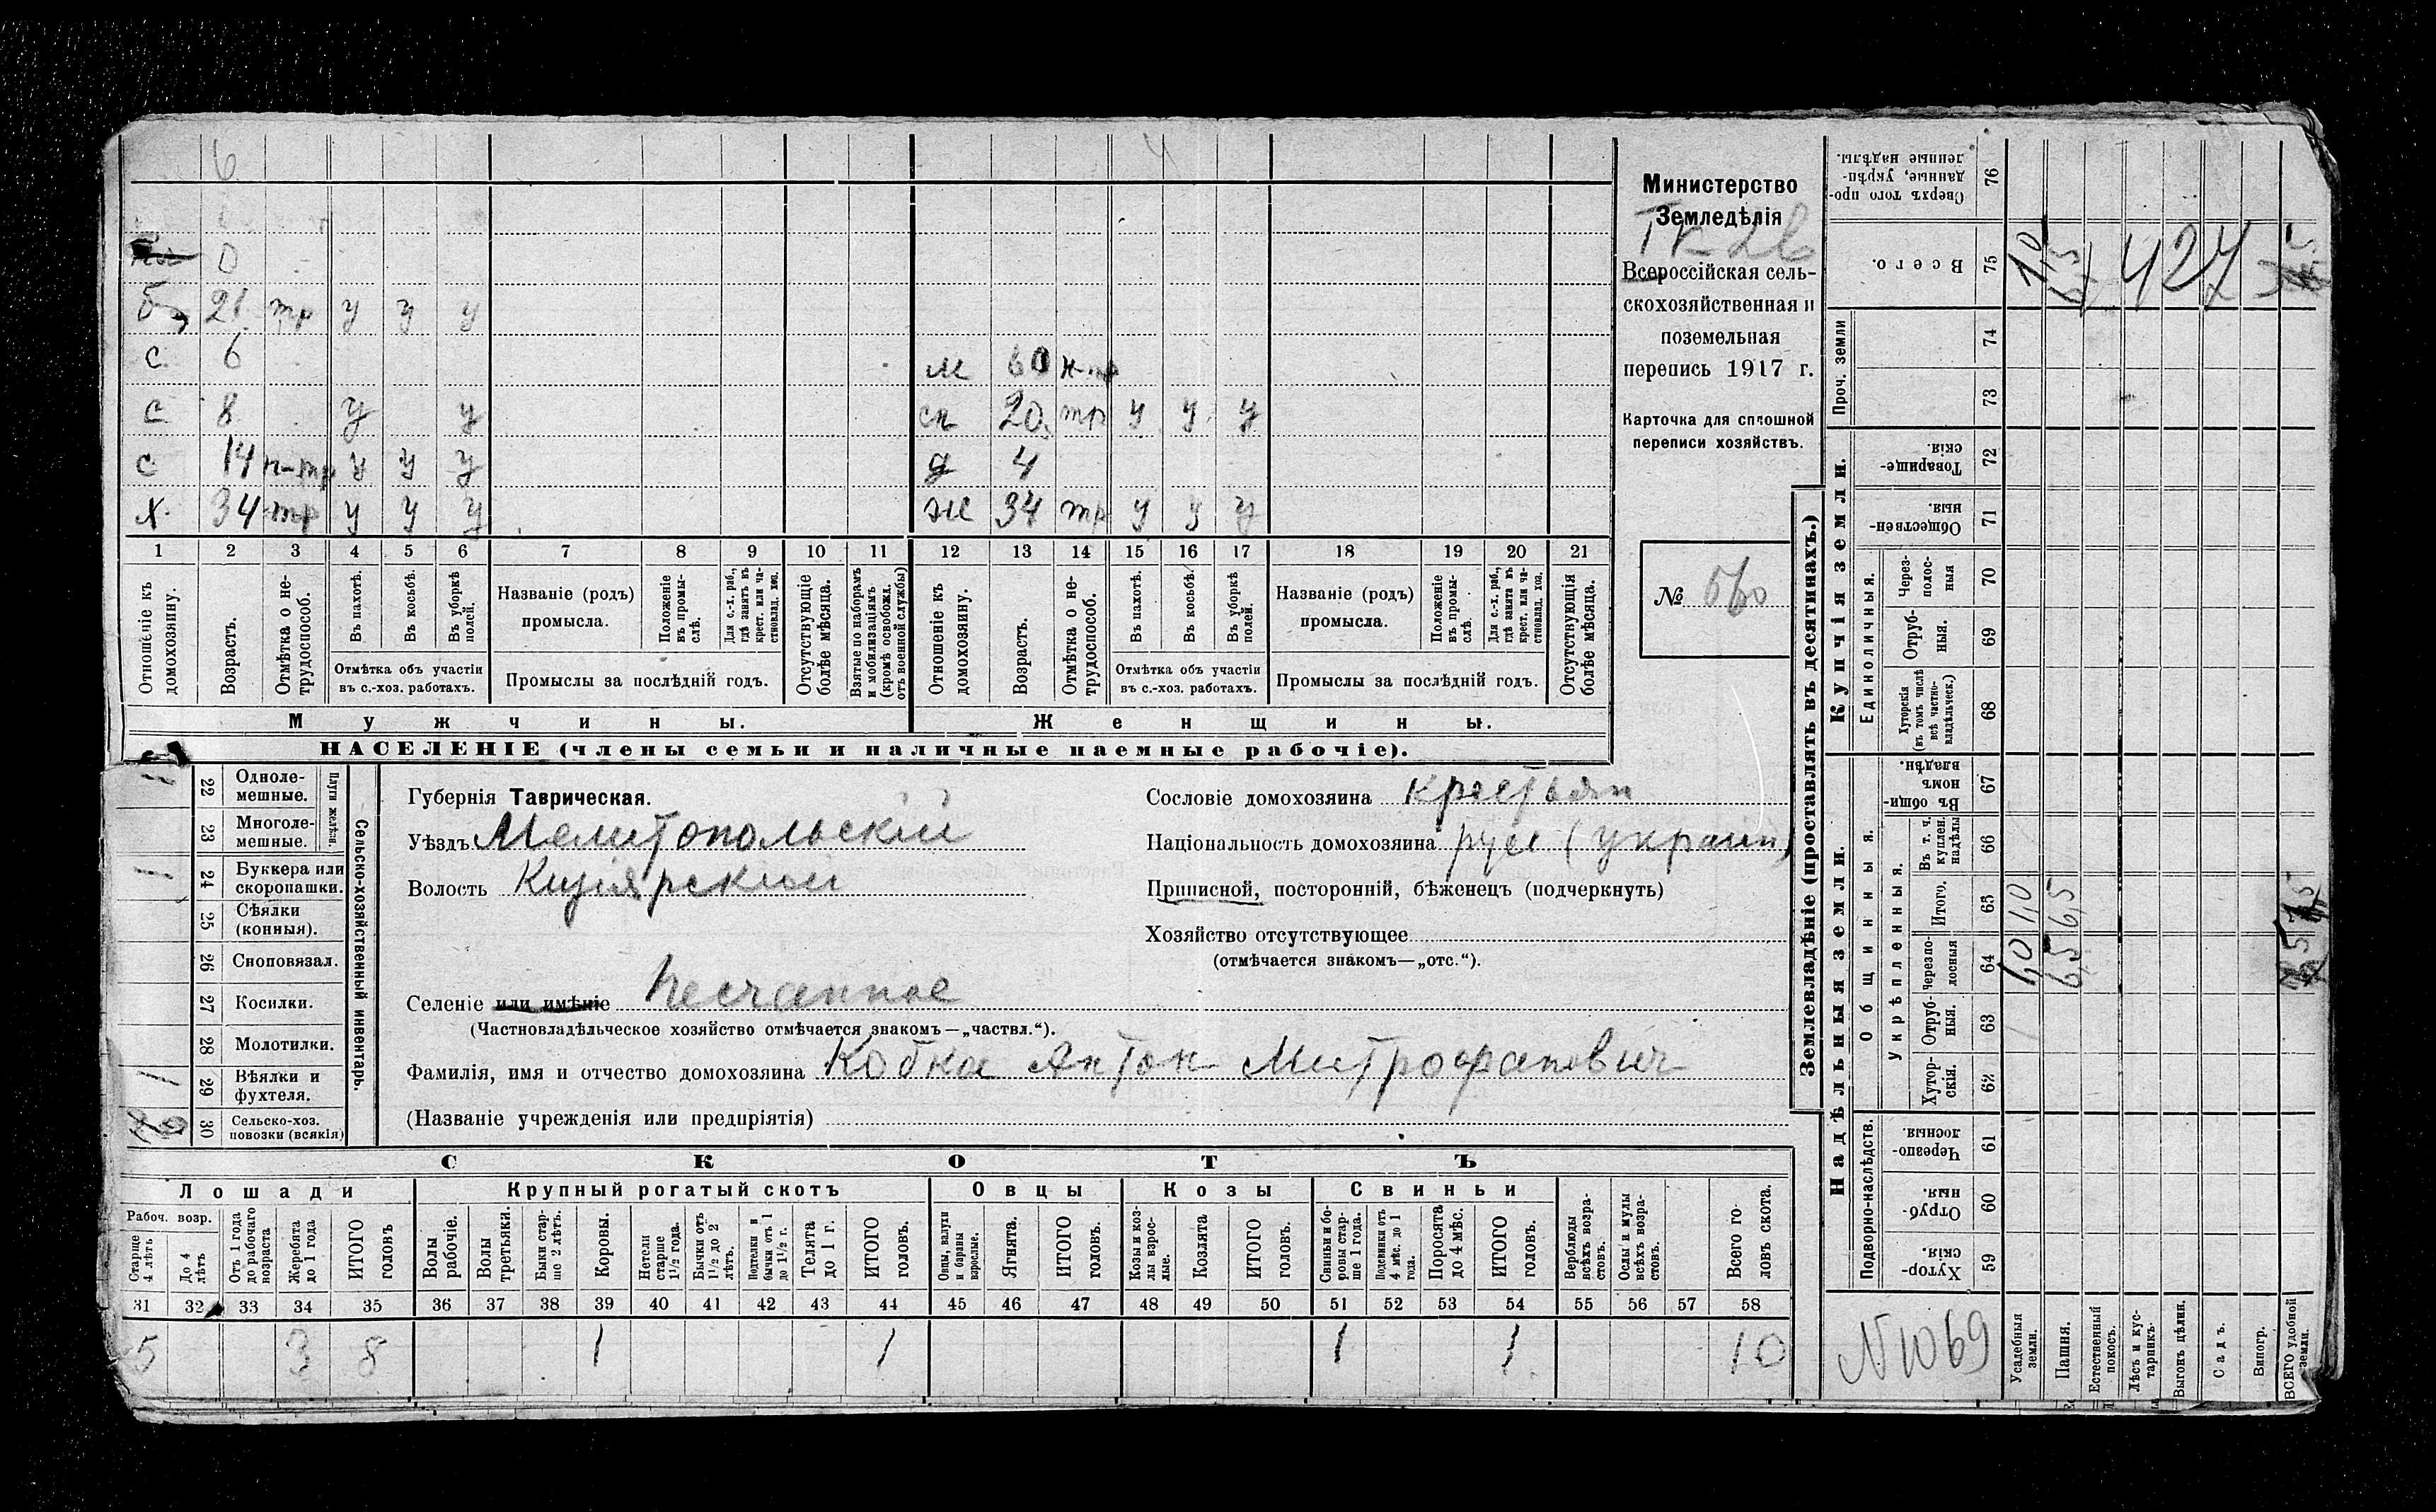 6 4
0
Б 21 тр у у у
с 6 м 60 н-тр
с 8 у у сн 20 тр у у у
с 14 п-тр у у у д 4
х 34 тр у у у ж 34 тр у у у
1 2 3 4 5 6 7 8 9 10 11 12 13 14 15 16 17 18 19 20 21
Отношеніе къ домохозяину.
Возрастъ.
Отмѣтка о не-трудоспособ.
Въ пахотѣ.
Въ косьбѣ.
Въ уборкѣ полей.
Отмѣтка объ участіи
въ с.-хоз. работахъ.
Названіе (родъ)
промысла.
Положеніе въ промы-слѣ.
Для с.-х. раб., гдѣ занятъ въ крест. или ча-стновлад. хоз.
Промыслы за послѣдній годъ.
Отсутствующіе болѣе мѣсяца.
Взятые по наборамъ и мобилизаціямъ (кромѣ освобожд. отъ военной службы)
Отношеніе къ домохозяину.
Возрастъ.
Отмѣтка о не-трудоспособ.
Въ пахотѣ.
Въ косьбѣ.
Въ уборкѣ полей.
Отмѣтка объ участіи
въ с.-хоз. работахъ.
Названіе (родъ)
промысла.
Положеніе въ промы-слѣ.
Для с.-х. раб., гдѣ занята въ крест. или ча-стновлад. хоз.
Промыслы за послѣдній годъ.
Отсутствующія болѣе мѣсяца.
Мужчины. Женщины.
НАСЕЛЕНІЕ (члены семьи и наличные наемные рабочіе).
Министерство
Земледѣлія
Всероссійская сель-
скохозяйственная и
поземельная
перепись 1917 г.
Карточка для сплошной
переписи хозяйствъ.
№
Сельско-хозяйственный инвентарь.
Плуги желѣзн.
22 Одноле-мешные. 1
23 Многоле-мешные.
24 Буккера или скоропашки. 1
25 Сѣялки (конныя).
26 Сноповязал.
27 Косилки.
28 Молотилки.
29 Вѣялки и фухтеля. 1
30 Сельско-хоз. повозки (всякія)
Губернія Таврическая.
Уѣздъ Мелитопольскій
Волость Кизіярскій
Селеніе или имѣніе Песчанное
(Частновладѣльческое хозяйство отмѣчается знакомъ—„частвл.“).
Фамилія, имя и отчество домохозяина Кобка Антон Митрофанович
(Названіе учрежденія или предпріятія)
Сословіе домохозяина крестьян
Національность домохозяина русс (украин)
Приписной, посторонній, бѣженецъ (подчеркнуть)
Хозяйство отсутствующее
(отмѣчается знакомъ—„отс.“).
СКОТЪ
Лошади Крупный рогатый скотъ Овцы Козы Свиньи
Рабоч. возр.
Старще 4 лѣтъ
До 4 лѣтъ
Отъ 1 года до рабочаго возраста
Жеребята до 1 года
ИТОГО головъ
Волы рабочіе.
Волы третьяки.
Быки стар-ше 2 лѣтъ.
Коровы.
Нетели старше 1½ года.
Бычки отъ 1½ до 2 лѣтъ.
Подтелки и бычки отъ 1 до 1½ г.
Телята до 1 г.
ИТОГО головъ.
Овцы, валухи и бараны взрослые.
Ягнята.
ИТОГО головъ.
Козы и коз-лы взрос-лые.
Козлята
ИТОГО головъ.
Свиньи и бо-ровы стар-ше 1 года.
Подсвинки отъ 4 мѣс. до 1 года.
Поросята до 4 мѣс.
ИТОГО головъ.
Верблюды всѣхъ возра-стовъ.
Ослы и мулы всѣхъ возра-стовъ.
Всего го-ловъ скота.
31 32 33 34 35 36 37 38 39 40 41 42 43 44 45 46 47 48 49 50 51 52 53 54 55 56 57 58
5 3 8 1 1 1 1 10
Землевладѣніе (проставлять въ десятинахъ.)
Надѣльныя земли. Купчія земли.
Проч. земли
Подворно-наслѣдств.
Общинныя.
Укрѣпленныя.
Единоличныя.
Сверхъ того про-данные, укрѣп-ленные надѣлы. 76
Всего. 75
74
73
Товарище-скія 72
Обществен-ныя. 71
Через-полос-ныя 70
Отруб-ныя. 69
Хуторскія (въ томъ числѣ всѣ частно-владѣльческ.) 68
Въ общи-номъ владѣн. 67
Въ т. ч. куплен. надѣлы 66
Итого. 65 1,0 6,5
Черезпо-лосныя 64 1,0 6,5
Отруб-ныя. 63
Хутор-скія. 62
Черезпо-лосныя. 61
Отруб-ныя. 60
Хутор-скія. 59
N 1069
Усадебныя земли.
Пашня.
Естественный покосъ.
Лѣсъ и кус-тарникъ.
Выгонъ цѣлин.
Садъ.
Виногр.
ВСЕГО удобной земли.